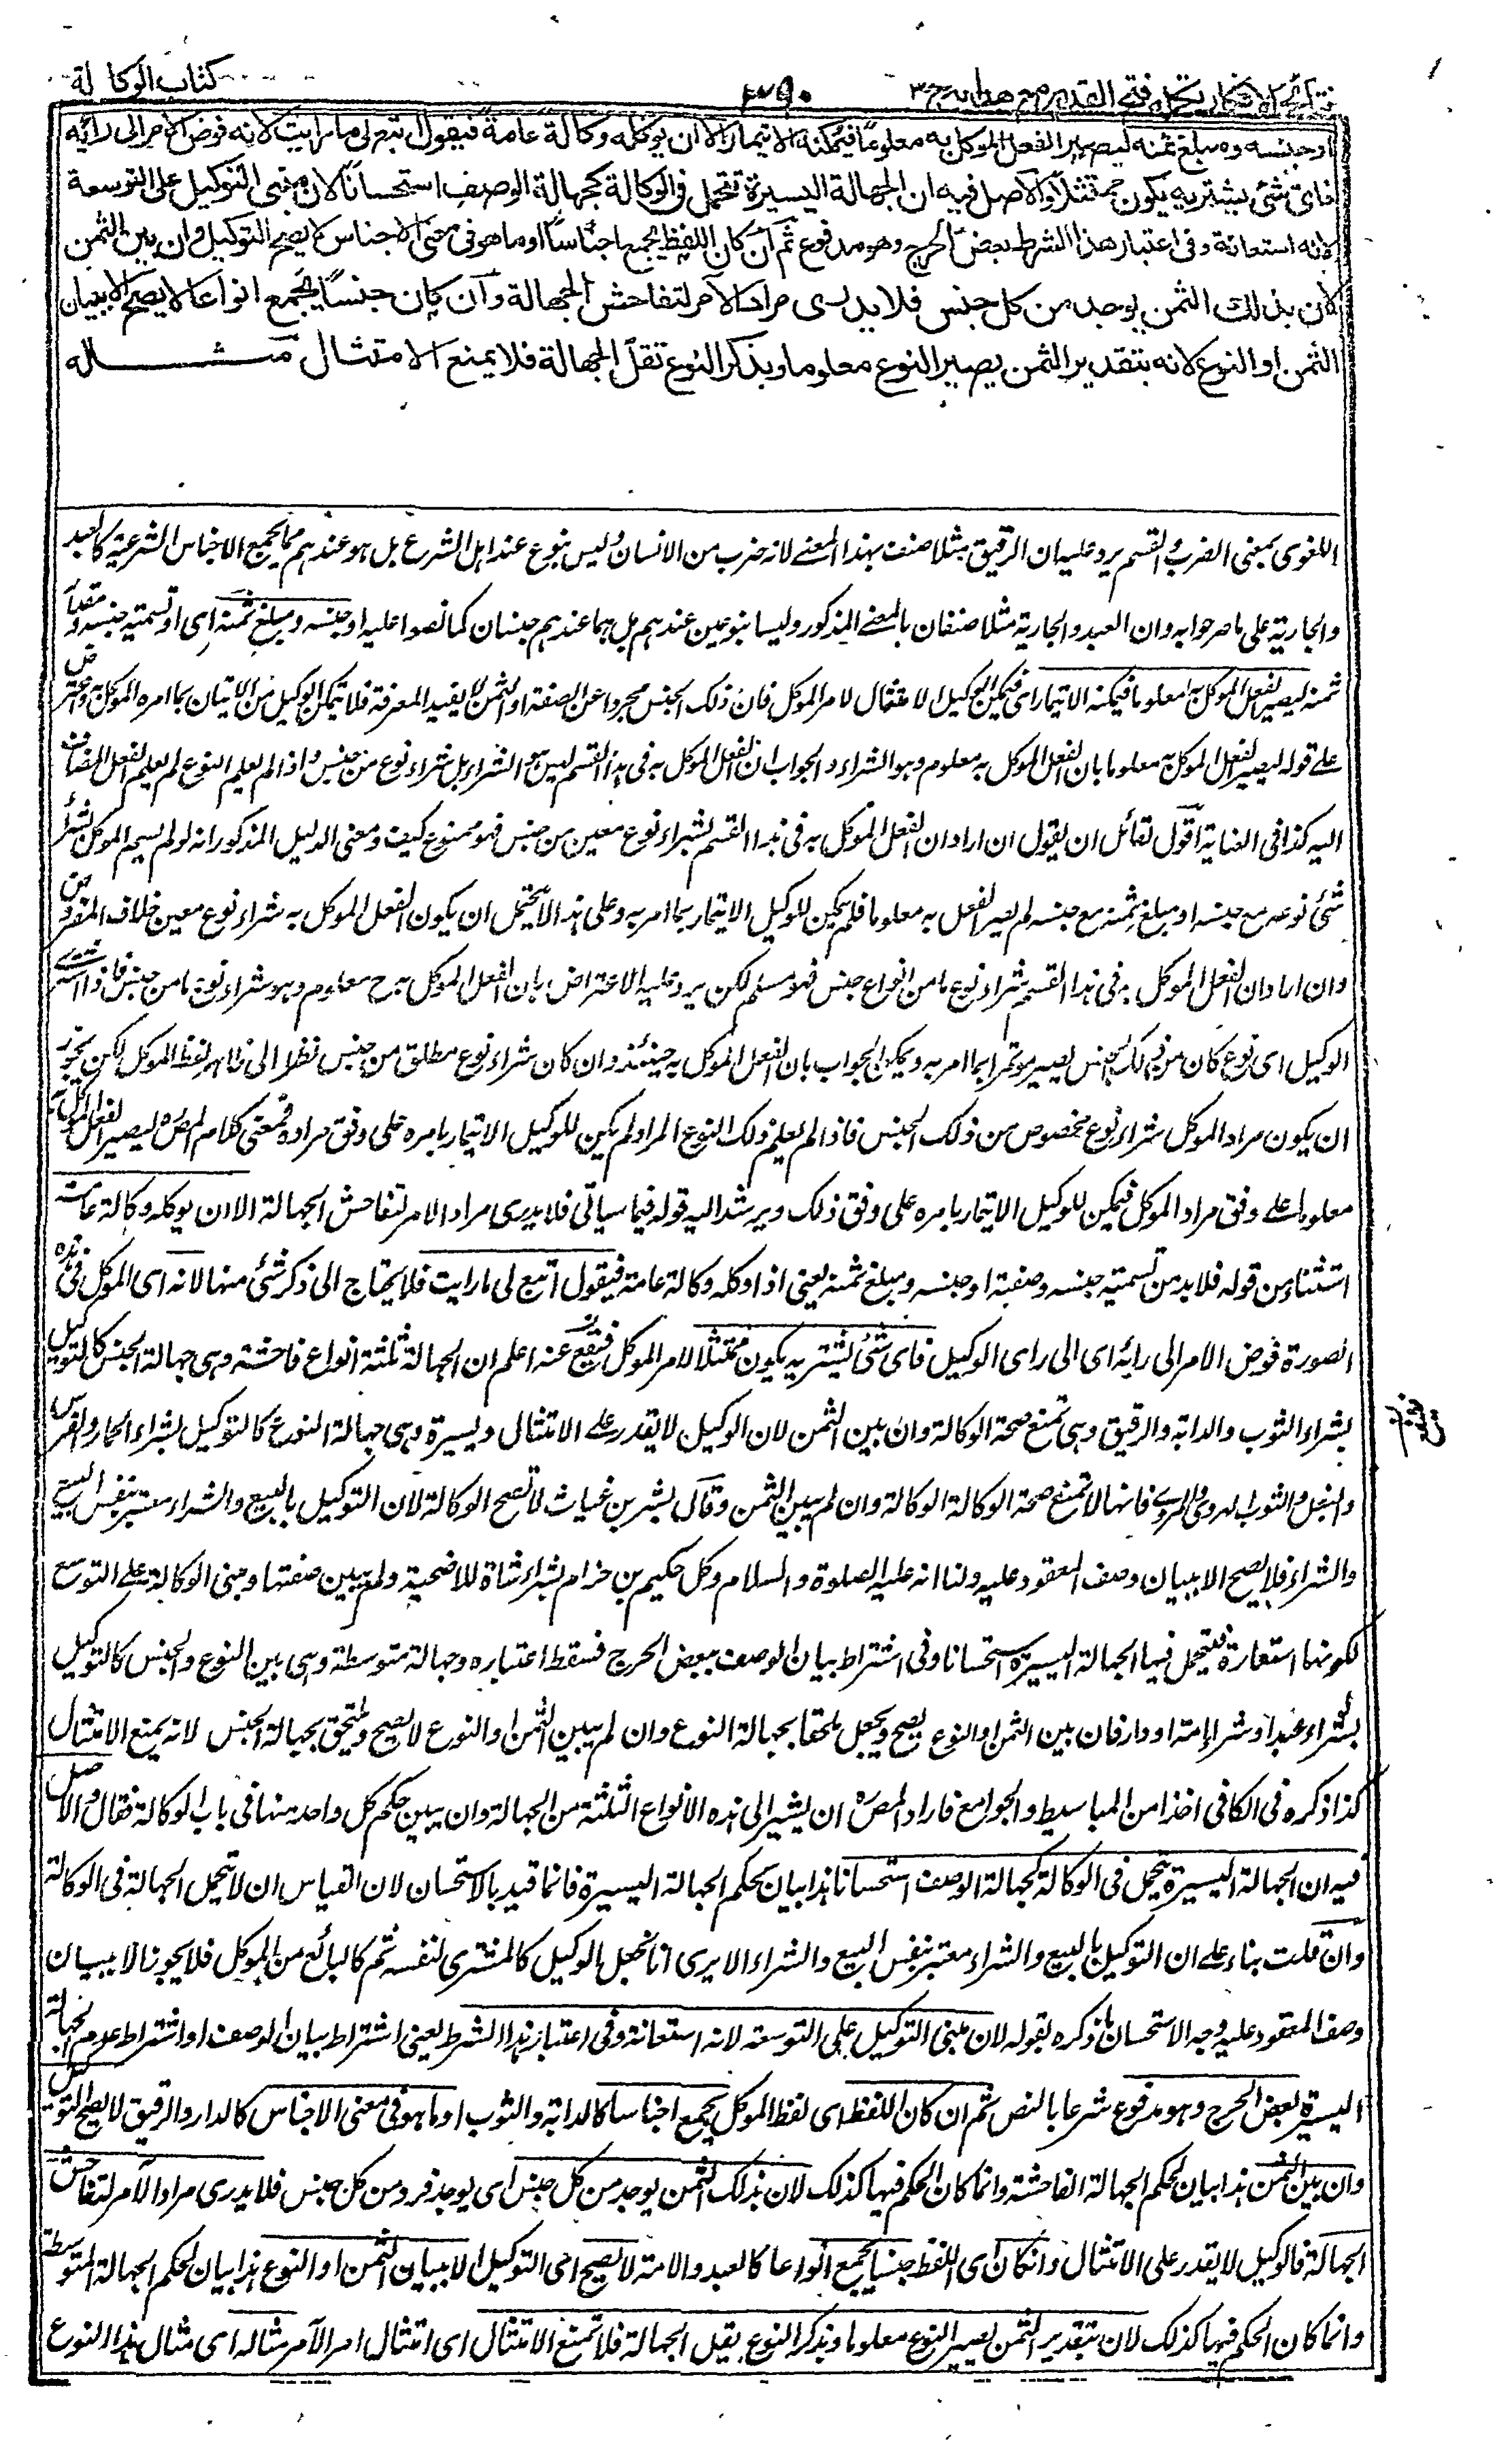 نتائج الافكار تكملة فتح القدير مع هدايه ج ٣
٤٥٠
كتاب الوكالة
او جنسه ومبلغ ثمنه ليصير الفعل الموكل به معلوما فيمكنه الايتمار الا ان يوكله وكالة عامة فيقول ابتع لي ما رايت لانه فوض الامر الى رائيه
فاى شئ يشتريه يكون ممتثلا والاصل فيه ان الجهالة اليسيرة تتحمل في الوكالة كجهالة الوصف استحسانا لان مبنى التوكيل على التوسعة
لانه استعانة وفى اعتبار هذا الشرط بعض الحرج وهو مدفوع ثم ان كان اللفظ يجمع اجناسا او ما هو فى معنى الاجناس لا يصح التوكيل وان بين الثمن
لان بذلك الثمن يوجد من كل جنس فلا يدرى مراد الآمر لتفاحش الجهالة وان كان جنسا يجمع انواعا لا يصح الا ببيان
الثمن او النوع لانه بتقدير الثمن يصير النوع معلوما وبذكر النوع تقل الجهالة فلا يمنع الامتثال مثاله
اللغوى بمعنى الضرب والقسم يرد عليه ان الرقيق مثلا صنف بهذا المعنے لانه ضرب من الانسان وليس بنوع عند اهل الشرع بل هو عندهم مما يجمع الاجناس الشرعية كالعبد
والجارية على ما صرحوا به وان العبد والجارية مثلا صنفان بالمعنے المذكور وليسا بنوعين عندهم بل هما عندهم جنسان كما نصوا عليه او جنسه ومبلغ ثمنه اى او تسمية جنسه ومقدار
ثمنه ليصير الفعل الموكل به معلوما فيمكنه الايتمار اى فيمكن الوكيل الامتثال لامر الموكل فان ذكر الجنس مجردا عن الصفة او الثمن لا يفيد المعرفة فلا يتمكن الوكيل من الاتيان بما امره الموكل به واعترض
علے قوله ليصير الفعل الموكل به معلوما بان الفعل الموكل به معلوم وهو الشراء والجواب ان الفعل الموكل به فى هذا القسم ليس هو الشراء بل شراء نوع من جنس واذا لم يعلم النوع لم يعلم الفعل المضاف
اليه كذا فى العناية اقول لقائل ان يقول ان اراد ان الفعل الموكل به فى هذا القسم لشراء نوع معين من جنس فهو ممنوع كيف ومعنى الدليل المذكور انه لو لم يسم الموكل بشراء
شئ نوعه مع جنسه او مبلغ ثمنه مع جنسه لم يصر الفعل به معلوما فلم يمكن للوكيل الايتمار بما امر به وعلى هذا لا يحتمل ان يكون الفعل الموكل به شراء نوع معين خلاف المفروض
وان اراد ان الفعل الموكل به فى هذا القسم شراء نوع ما من انواع جنس فهو مسلم لكن يرد عليه الاعتراض بان الفعل الموكل به ح معلوم وهو شراء نوع ما من جنس فاذا اشترے
الوكيل اى نوع كان من ذلك الجنس يصير مؤتمرا بما امر به ويمكن الجواب بان الفعل الموكل به حينئذ وان كان شراء نوع مطلق من جنس نظرا الى ظاهر لفظ الموكل لكن يجوز
ان يكون مراد الموكل شراء نوع مخصوص من ذلك الجنس فاذا لم يعلم ذلك النوع المراد لم يمكن للوكيل الايتمار بامره على وفق مراده فمعنى كلام المصره ليصير الفعل الموكل به
معلوما علے وفق مراد الموكل فيمكن للوكيل الايتمار بامره على وفق ذلك ويرشد اليه قوله فيما سياتى فلا يدرى مراد الامر لتفاحش الجهالة الا ان يوكله وكالة عامة
استثناء من قوله فلا بد من تسمية جنسه وصفته او جنسه ومبلغ ثمنه يعنى اذا وكله وكالة عامة فيقول ابتع لى ما رايت فلا يحتاج الى ذكر شئ منها لانه اى الموكل فى هذه
الصورة فوض الامر الى رايه اى الى راى الوكيل فاى شئ يشتريه يكون ممتثلا لامر الموكل فيقع عنه اعلم ان الجهالة ثلثة انواع فاحشة وهى جهالة الجنس كالتوكيل
بشراء الثوب والدابة والرقيق وهى تمنع صحة الوكالة وان بين الثمن لان الوكيل لا يقدر على الامتثال ويسيرة وهى جهالة النوع كالتوكيل بشراء الحمار والفرس
والبغل والثوب الهروى والمروے فانها لا تمنع صحة الوكالة الوكالة وان لم يبين الثمن وقال بشر بن غياث لا تصح الوكالة لان التوكيل بالبيع والشراء معتبر بنفس البيع
والشراء فلا يصح الا ببيان وصف المعقود عليه ولنا انه عليه الصلوة والسلام وكل حكيم بن حزام بشراء شاة للاضحية ولم يبين صفتها ومبنى الوكالة علے التوسع
لكونها استعارة فيتحمل فيها الجهالة اليسيرة استحسانا وفى اشتراط بيان الوصف بعض الحرج فسقط اعتباره وجهالة متوسطة وهى بين النوع والجنس كالتوكيل
بشراء عبد او شراء امة او دار فان بين الثمن او النوع يصح ويجعل ملحقا بجهالة النوع وان لم يبين الثمن او النوع لا يصح ويلتحق بجهالة الجنس لانه يمنع الامتثال
كذا ذكره فى الكافى اخذا من المباسيط والجوامع فاراد المصره ان يشير الى هذه الانواع الثلثة من الجهالة وان يبين حكم كل واحد منها فى باب الوكالة فقال والاصل
فيه ان الجهالة اليسيرة يتحمل فى الوكالة كجهالة الوصف استحسانا هذا بيان لحكم الجهالة اليسيرة فانما قيد بالاستحسان لان القياس ان لا تتحمل الجهالة فى الوكالة
وان قلت بناء علے ان التوكيل بالبيع والشراء معتبر بنفس البيع والشراء الا يرى انا نجعل الوكيل كالمشترى لنفسه ثم كالبائع من الموكل فلا يجوز الا ببيان
وصف المعقود عليه وجه الاستحسان ما ذكره بقوله لان مبنى التوكيل على التوسعة لانه استعانة وفى اعتبار هذا الشرط يعنى اشتراط بيان الوصف او اشتراط عدم الجهالة
اليسيرة بعض الحرج وهو مدفوع شرعا بالنص ثم ان كان اللفظ اى لفظ الموكل يجمع اجناسا كالدابة والثوب او ما هو فى معنى الاجناس كالدار والرقيق لا يصح التوكيل
وان بين الثمن هذا بيان لحكم الجهالة الفاحشة وانما كان الحكم فيها كذلك لان بذلك الثمن يوجد من كل جنس اى يوجد فرد من كل جنس فلا يدرى مراد الآمر لتفاحش
الجهالة فالوكيل لا يقدر على الامتثال وان كان اى اللفظ جنسا يجمع انواعا كالعبد والامة لا يصح اى التوكيل الا ببيان الثمن او النوع هذا بيان لحكم الجهالة المتوسطة
وانما كان الحكم فيها كذلك لان بتقدير الثمن يصير النوع معلوما وبذكر النوع يقل الجهالة فلا تمنع الامتثال اى امتثال امر الآمر مثاله اى مثال هذا النوع